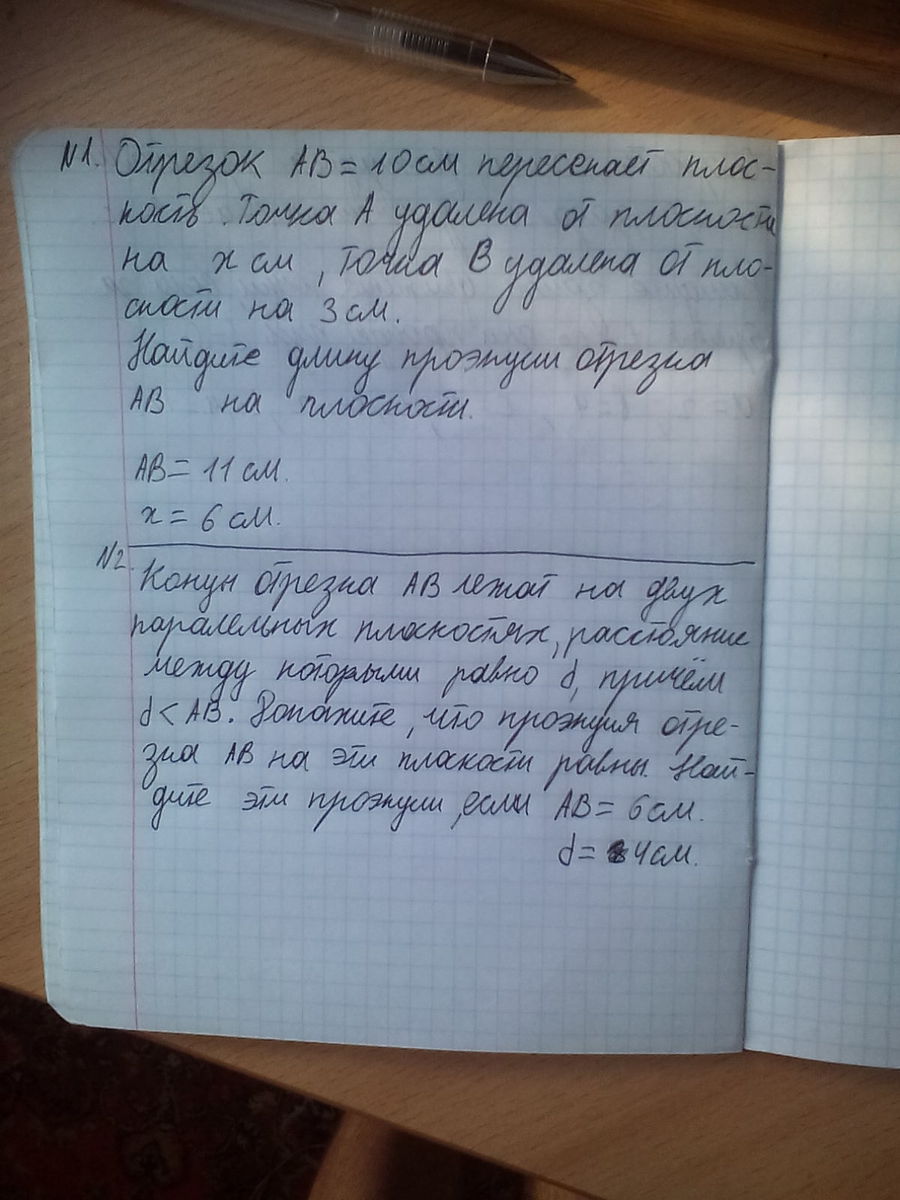 N1. Отрезок AB = 10 см пересекает плос-
кость. Точка A удалена от плоскости
на x см, точка B удалена от пло-
скости на 3 см.
Найдите длину проэкции отрезка
AB на плоскости.
AB = 11 см.
x = 6 см.
N2. Концы отрезка AB лежат на двух
паралельных плоскостях, расстояние
между которыми равно d, причём
d < AB. Докажите, что проэкция отре-
зка AB на эти плоскости равны. Най-
дите эти проэкции, если AB = 6 см.
d = 4 см.